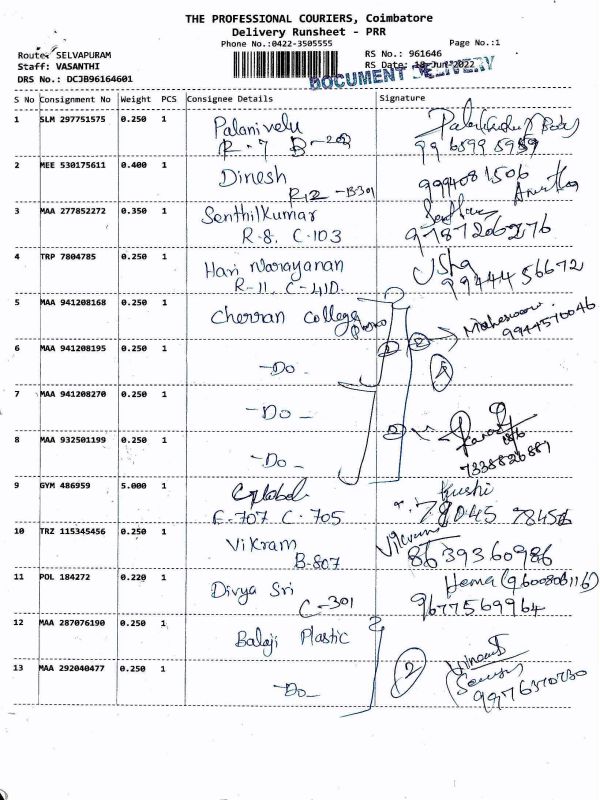 THE PROFESSIONAL COURIERS, Coimbatore
Delivery Runsheet - PRR
Phone No.:0422-3505555 Page No.:1
Route: SELVAPURAM RS No.: 961646
Staff: VASANTHI RS Date: 18-Jun-2022
DRS No.: DCJB96164601 DOCUMENT DELIVERY
S No Consignment No Weight PCS Consignee Details Signature
1 SLM 297751575 0.250 1 Palanivelu
R-7 B-202 99 65995959
2 MEE 530175611 0.400 1 Dinesh 9994081506
R12-B301
3 MAA 277852272 0.350 1 Senthilkumar
R-8. C-103 9787206276
4 TRP 7804785 0.250 1 Hari Narayanan Usha
R-11. C-410. 9944456672
5 MAA 941208168 0.250 1 Cherran College 2 Maheswari
9944570046
6 MAA 941208195 0.250 1 -Do-
7 MAA 941208270 0.250 1 -Do-
8 MAA 932501199 0.250 1 -Do- 2
7338826889
9 GYM 486959 5.000 1 Global Kushi
F-707 C-705 78045 78456
10 TRZ 115345456 0.250 1 Vikram Vikram
B-807 8639360986
11 POL 184272 0.220 1 Divya Sri Hema (9600806116)
C-301 9677569964
12 MAA 287076190 0.250 1 Balaji Plastic
13 MAA 292040477 0.250 1 -Do- 2
9976370730